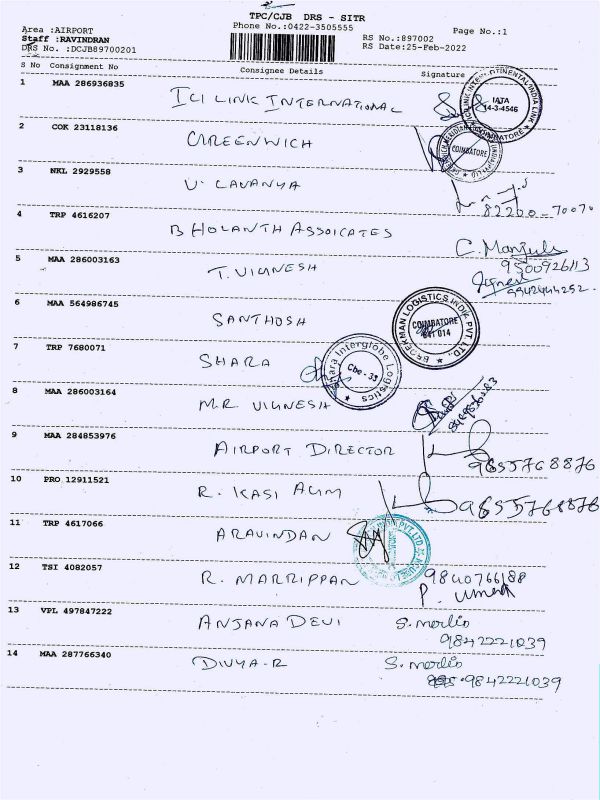 TPC/CJB DRS - SITR
Area :AIRPORT Phone No.:0422-3505555 Page No.:1
Staff :RAVINDRAN RS No.:897002
DRS No. :DCJB89700201 RS Date:25-Feb-2022
S No Consignment No Consignee Details Signature
1 MAA 286936835 ICI LINK INTERNATIONAL
IATA
14-3-4546
COIMBATORE
2 COK 23118136 GREENWICH
COIMBATORE
3 NKL 2929558 V. LAVANYA
82200-70070
4 TRP 4616207 BHOLANTH ASSOICATES
C. Manjula
9500926113
5 MAA 286003163 T. VIGNESH
9942444252.
6 MAA 564986745 SANTHOSH
BROEKMAN LOGISTICS INDIA PVT. LTD.
COIMBATORE
641 014
7 TRP 7680071 SHARA
Shara Interglobe Logistics
Cbe - 35
8 MAA 286003164 MR. VIGNESH
9 MAA 284853976 AIRPORT DIRECTOR
9655768876
10 PRO 12911521 R. KASI ALIM
9655768876
11 TRP 4617066 ARAVINDAN
12 TSI 4082057 R. MARRIPPAN 9840766188
P. Umesh
13 VPL 497847222 ANJANA DEVI S. merlin
9842221039
14 MAA 287766340 DIVYA-R S. merlin
9842221039